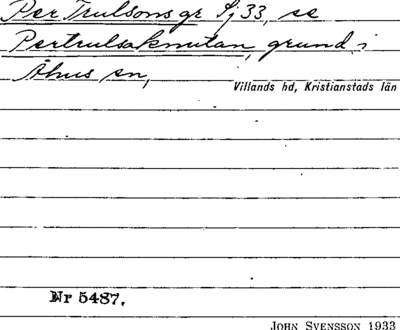 Per Trulsons gr Sj 33, se
Pertrulsaknutan, grund i
Åhus sn,
Villands hd, Kristianstads län
Nr 5487.
JOHN SVENSSON 1933